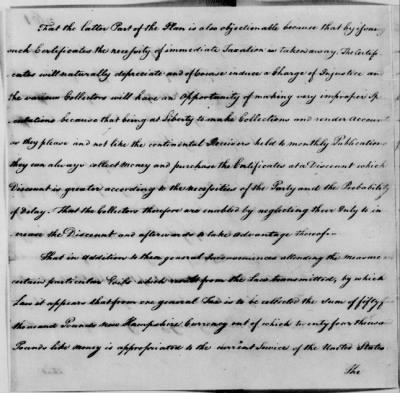 That the latter Part of the Plan is also objectionable because that by issuing
such Certificates the necessity of immediate Taxation is taken away. The Certifi-
cates will naturally depreciate and of course induce a Charge of Injustice and
the various Collectors will have an Opportunity of making very improper Spe-
culations because that being at Liberty to make Collections and render account
as they please and not like the continental Receivers held to monthly Publications
they can always collect Money and purchase the Certificates at a Discount which
Discount is greater according to the necessities of the Party and the Probability
of delay. That the Collectors therefore are enabled by neglecting their Duty to in-
crease the Discount and afterwards to take advantage thereof.
That in addition to these general Inconveniences attending the measure
certain particular Evils which from the Law transmitted, by which
Law it appears that from one general Tax is to be collected the Sum of fifty
thousand Pounds New Hampshire Currency out of which twenty four thousand
Pounds like money is appropriated to the current Service of the United States
The